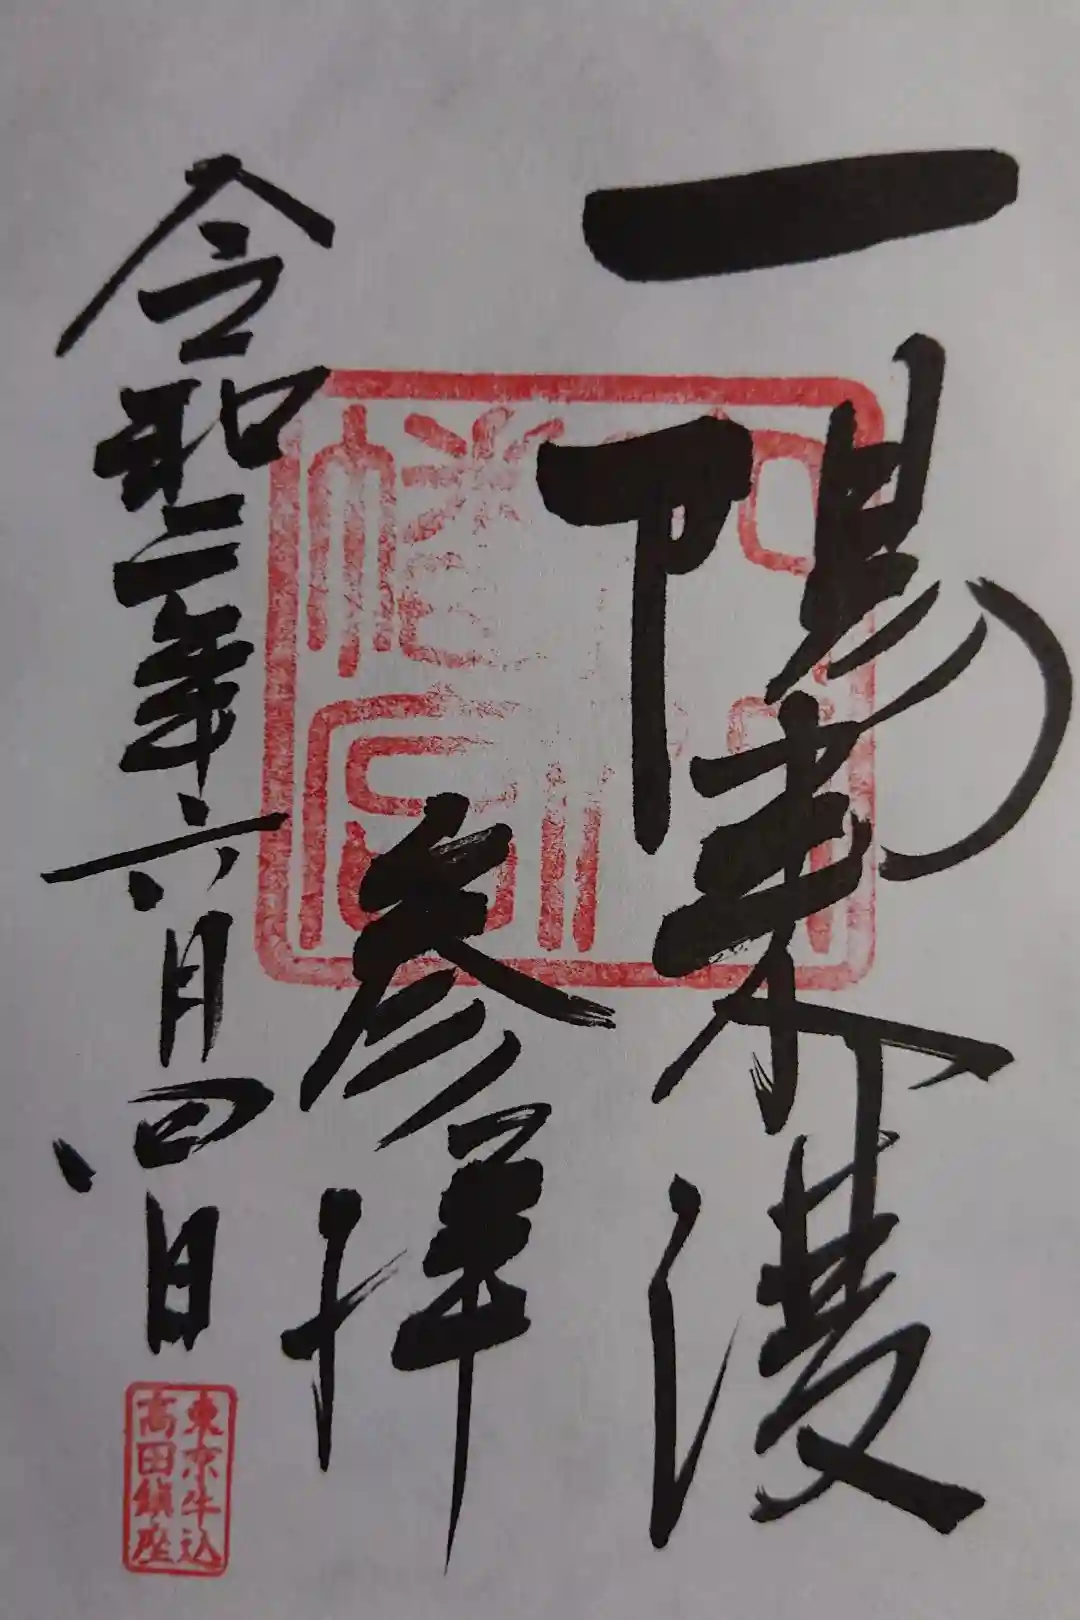 一陽来復
参拝
令和二年六月四日
東京牛込
高田鎮座